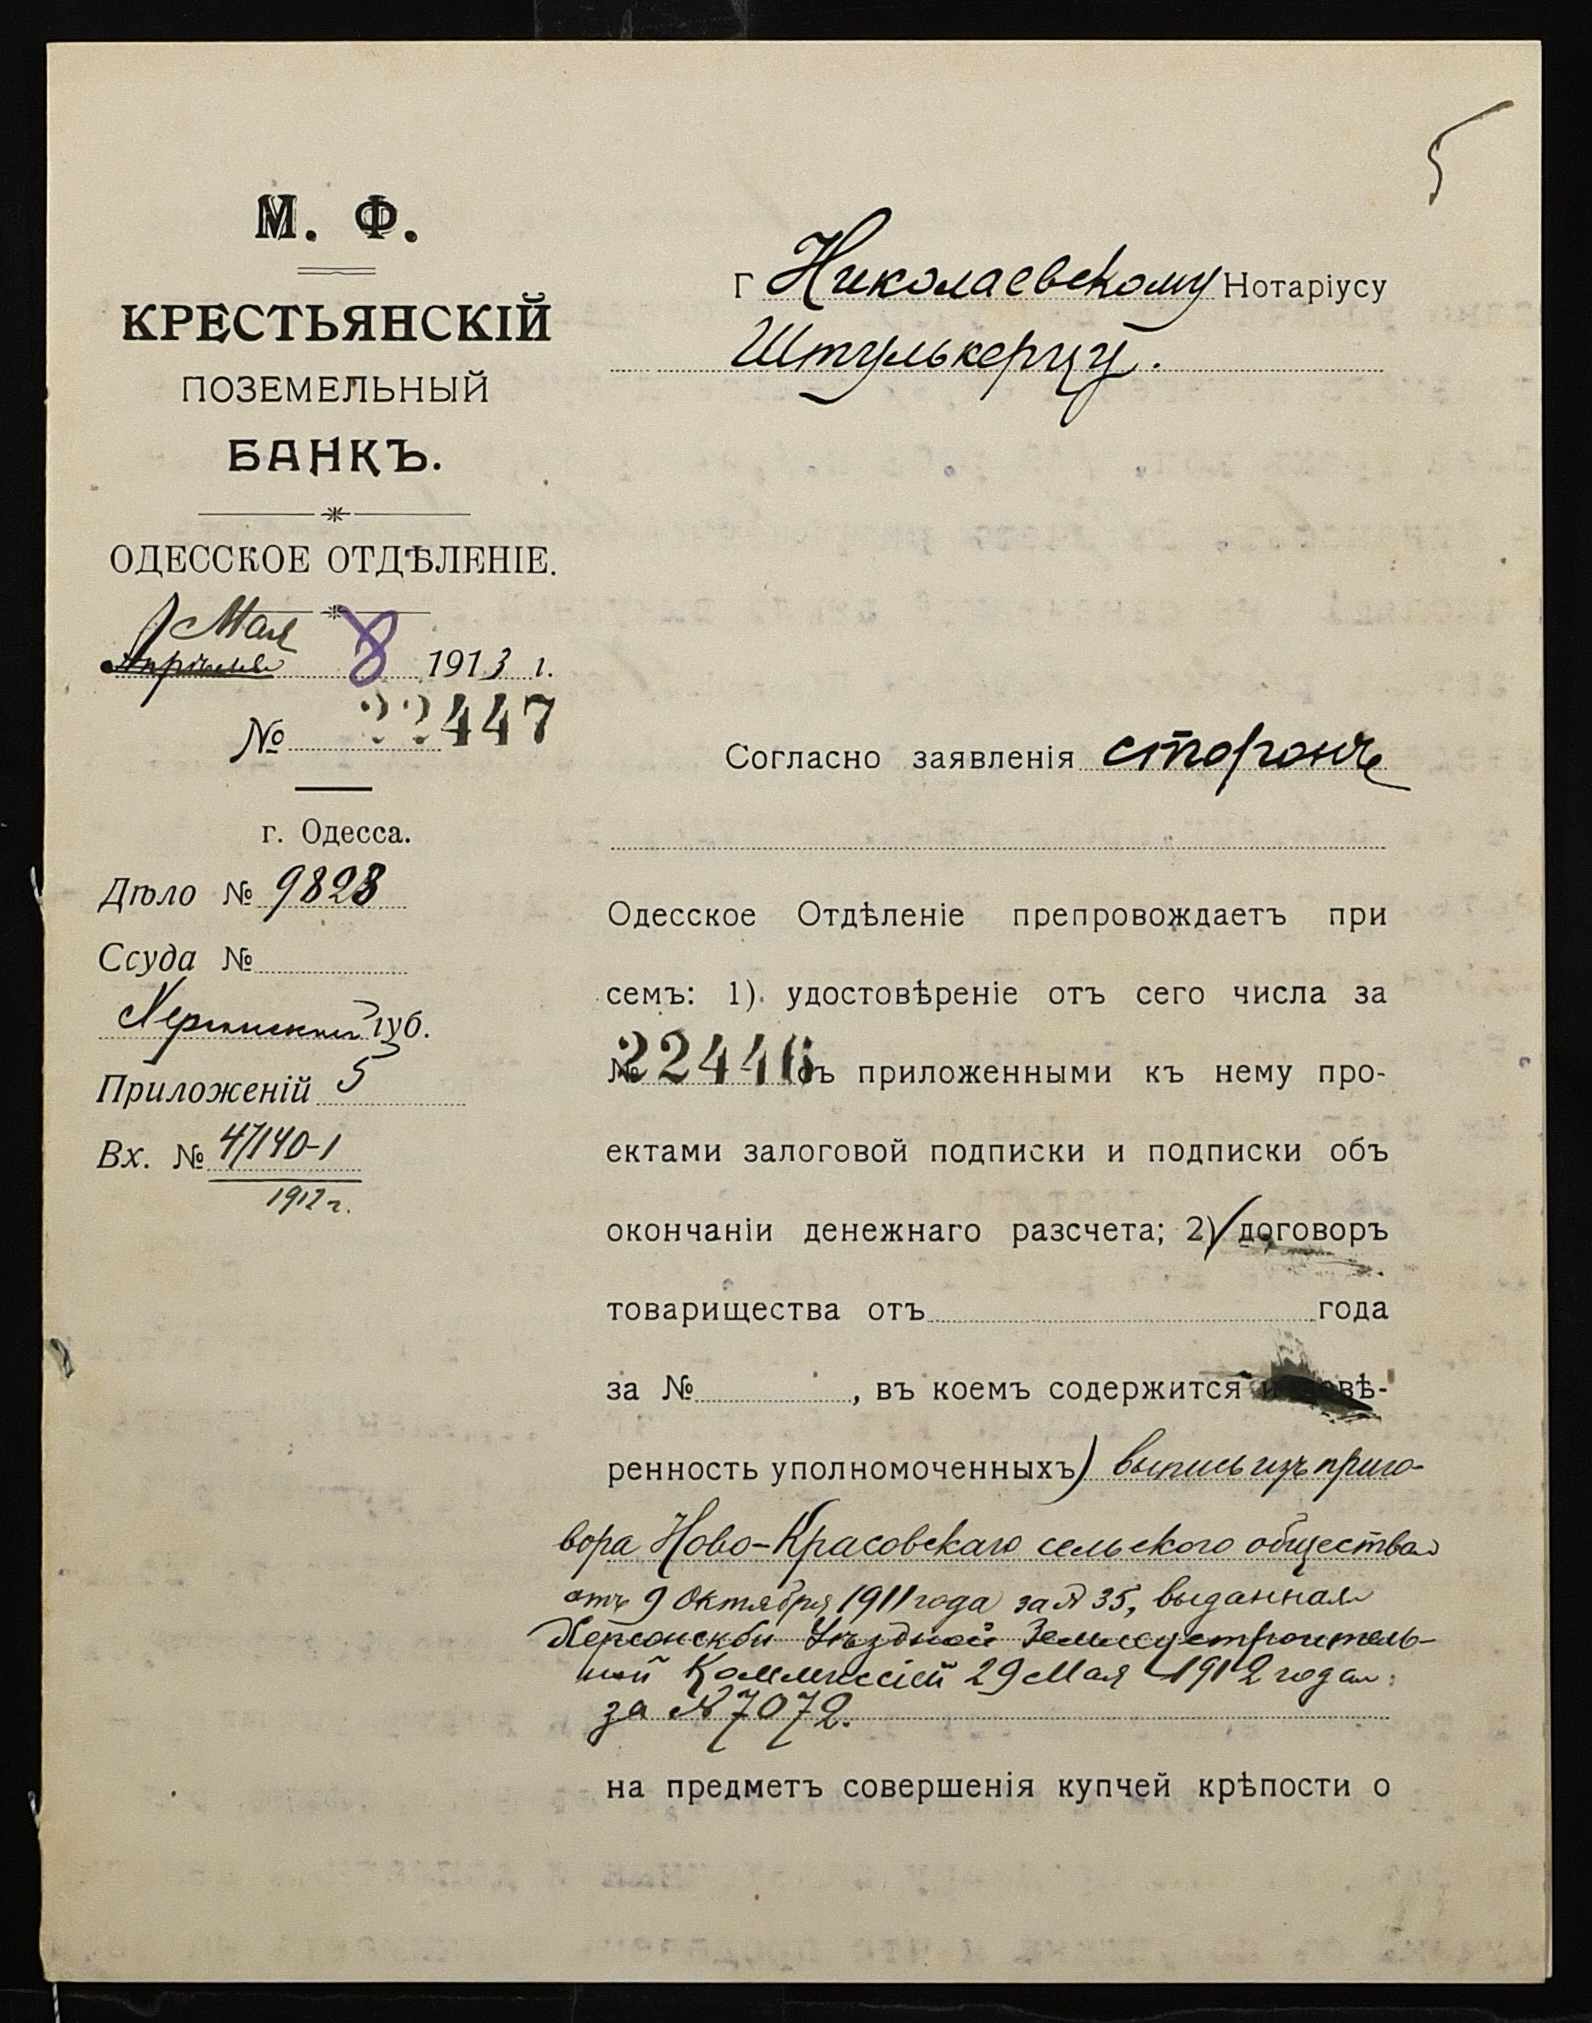 5
М. Ф.
КРЕСТЬЯНСКІЙ
ПОЗЕМЕЛЬНЫЙ
БАНКЪ.
ОДЕССКОЕ ОТДѢЛЕНІЕ.
Мая
Апрѣля 8 1913 г.
№ 22447
г. Одесса.
Дѣло № 9828
Ссуда №
Херсонской губ.
Приложеній 5
Вх. № 47140-1
1912 г.
Г Николаевскому Нотаріусу
Штулькерцу.
Согласно заявленія сторонъ
Одесское Отдѣленіе препровождаетъ при
семъ: 1) удостовѣреніе отъ сего числа за
№ 22446 съ приложенными къ нему про-
ектами залоговой подписки и подписки объ
окончаніи денежнаго разсчета; 2) договоръ
товарищества отъ года
за № , въ коемъ содержится и довѣ-
ренность уполномоченныхъ) выпись изъ приго-
вора Ново-Красовскаго сельского общества
отъ 9 Октября 1911 года за № 35, выданная
Херсонской Уѣздной Землеустроитель-
ной Коммиссіей 29 Мая 1912 года
за № 7072.
на предметъ совершенія купчей крѣпости о